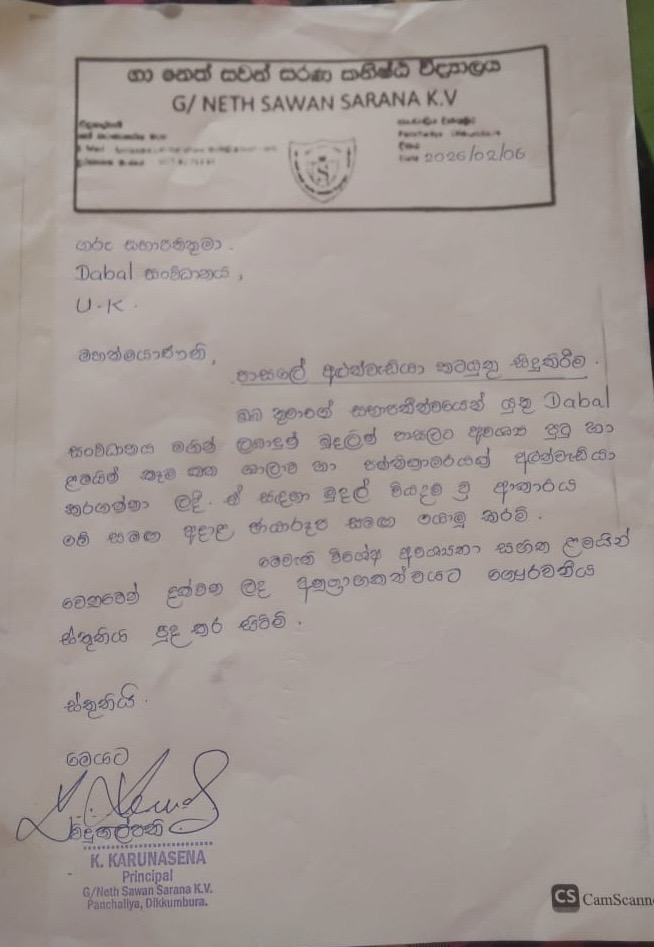 ගා නෙත් සවන් සරණ කනිෂ්ඨ විද්‍යාලය
G/ NETH SAWAN SARANA K.V
2026/02/06
ගරු සභාපතිතුමා.
Dabal සංවිධානය,
U.K.
මහත්මයාණනි,
පාසලේ අළුත්වැඩියා කටයුතු සිදුකිරීම.
ඔබ තුමාගේ සභාපතිත්වයෙන් යුතු Dabal
සංවිධානය මගින් ලබාදුන් මුදලින් පාසලට අවශ්‍ය පුටු හා
ළමයින් කෑම කන ශාලාව හා පන්තිකාමරයක් අළුත්වැඩියා
කරගන්නා ලදී. ඒ සඳහා මුදල් වියදම් වූ ආකාරය
මේ සමඟ අදාළ ඡායාරූප සමඟ යොමු කරමි.
මෙවැනි විශේෂ අවශ්‍යතා සහිත ළමයින්
වෙනුවෙන් දක්වන ලද අනුග්‍රාහකත්වයට ගෞරවනීය
ස්තූතිය පුද කර සිටිමි.
ස්තූතියි.
මෙයට
විදුහල්පති.
K. KARUNASENA
Principal
G/Neth Sawan Sarana K.V.
Panchaliya, Dikkumbura.
CS CamScann